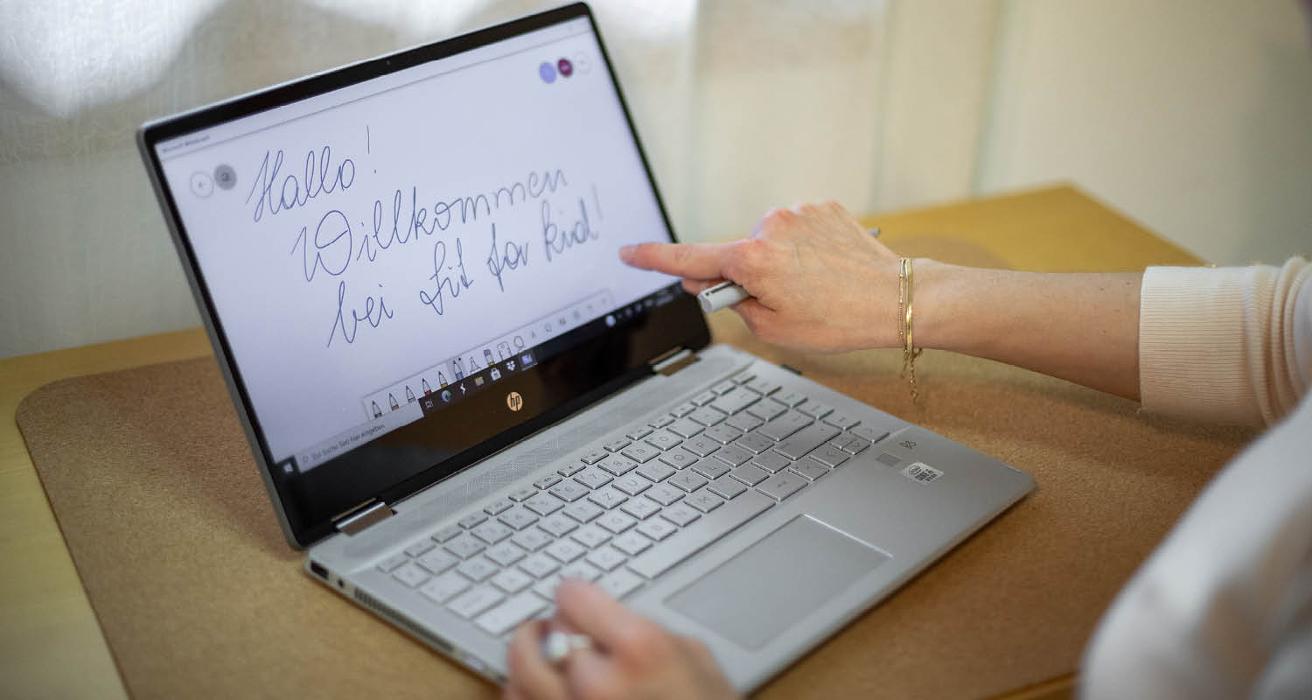 Microsoft Whiteboard
Hallo!
Willkommen
bei fit for kid!
Zur Suche Text hier eingeben
hp